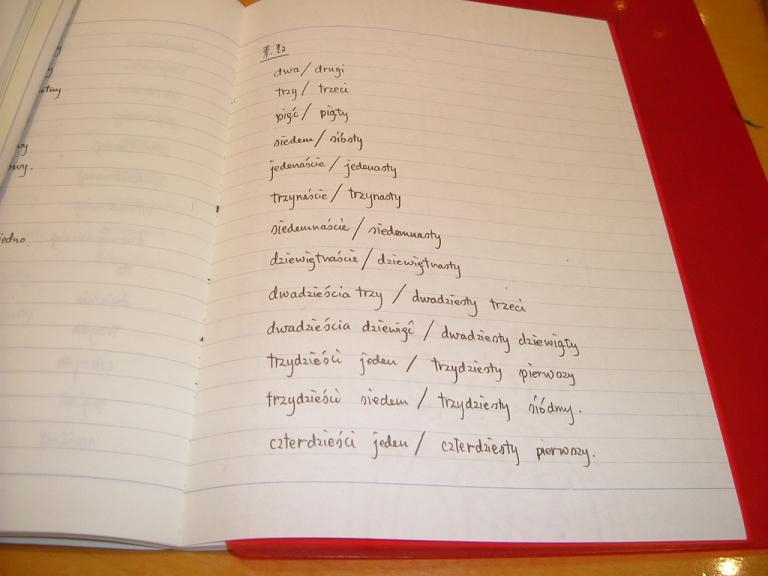 dwa / drugi
trzy / trzeci
pięć / piąty
siedem / siósty
jedenaście / jedenasty
trzynaście / trzynasty
siedemnaście / siedemnasty
dziewiętnaście / dziewiętnasty
dwadzieścia trzy / dwadziesty trzeci
dwadzieścia dziewięć / dwadziesty dziewiąty
trzydzieści jeden / trzydziesty pierwszy
trzydzieści siedem / trzydziesty siódmy.
czterdzieści jeden / czterdziesty pierwszy.